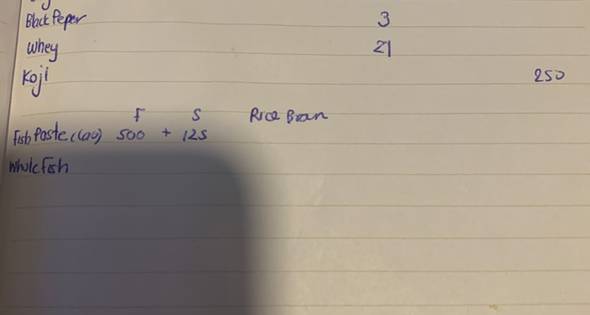 Black Peper 3
Whey 21
Koji 250
F S Rice Bran
Fish Paste 500 + 125
Whole Fish